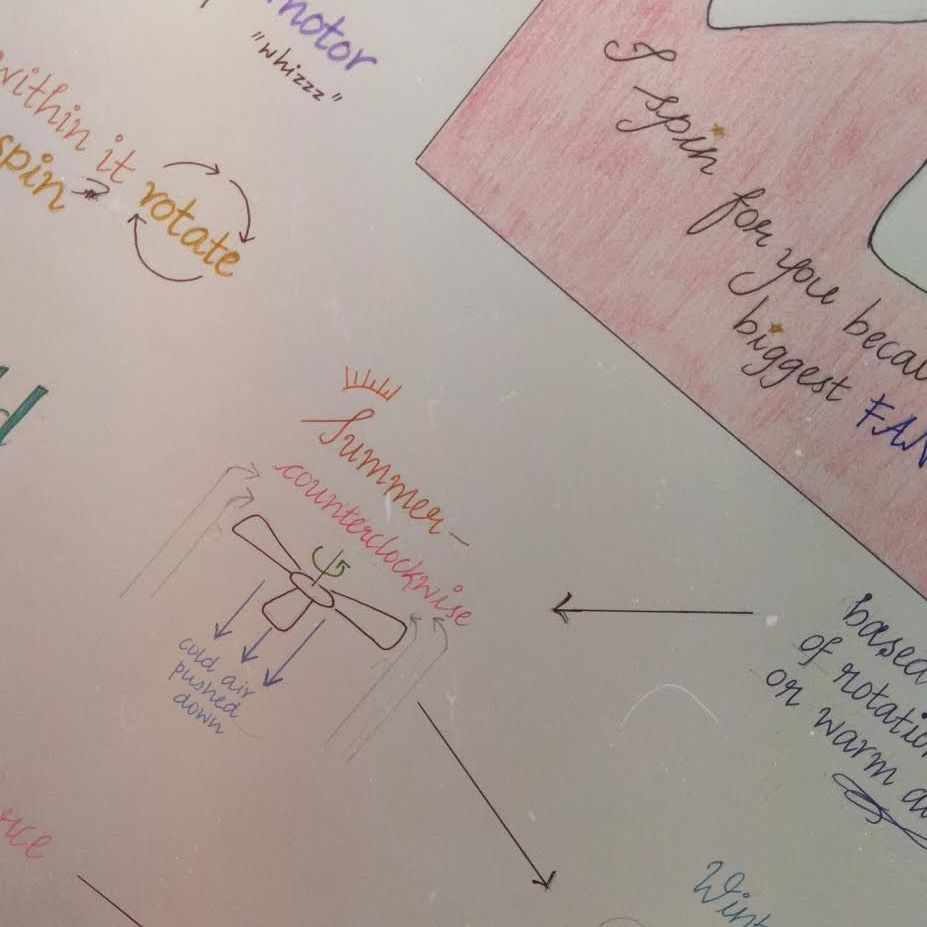 motor
"whizzz"
within it
spin
rotate
I spin
for you
biggest FAN
Summer-
counterclockwise
cold air
pushed
down
based
of rotation
on warm